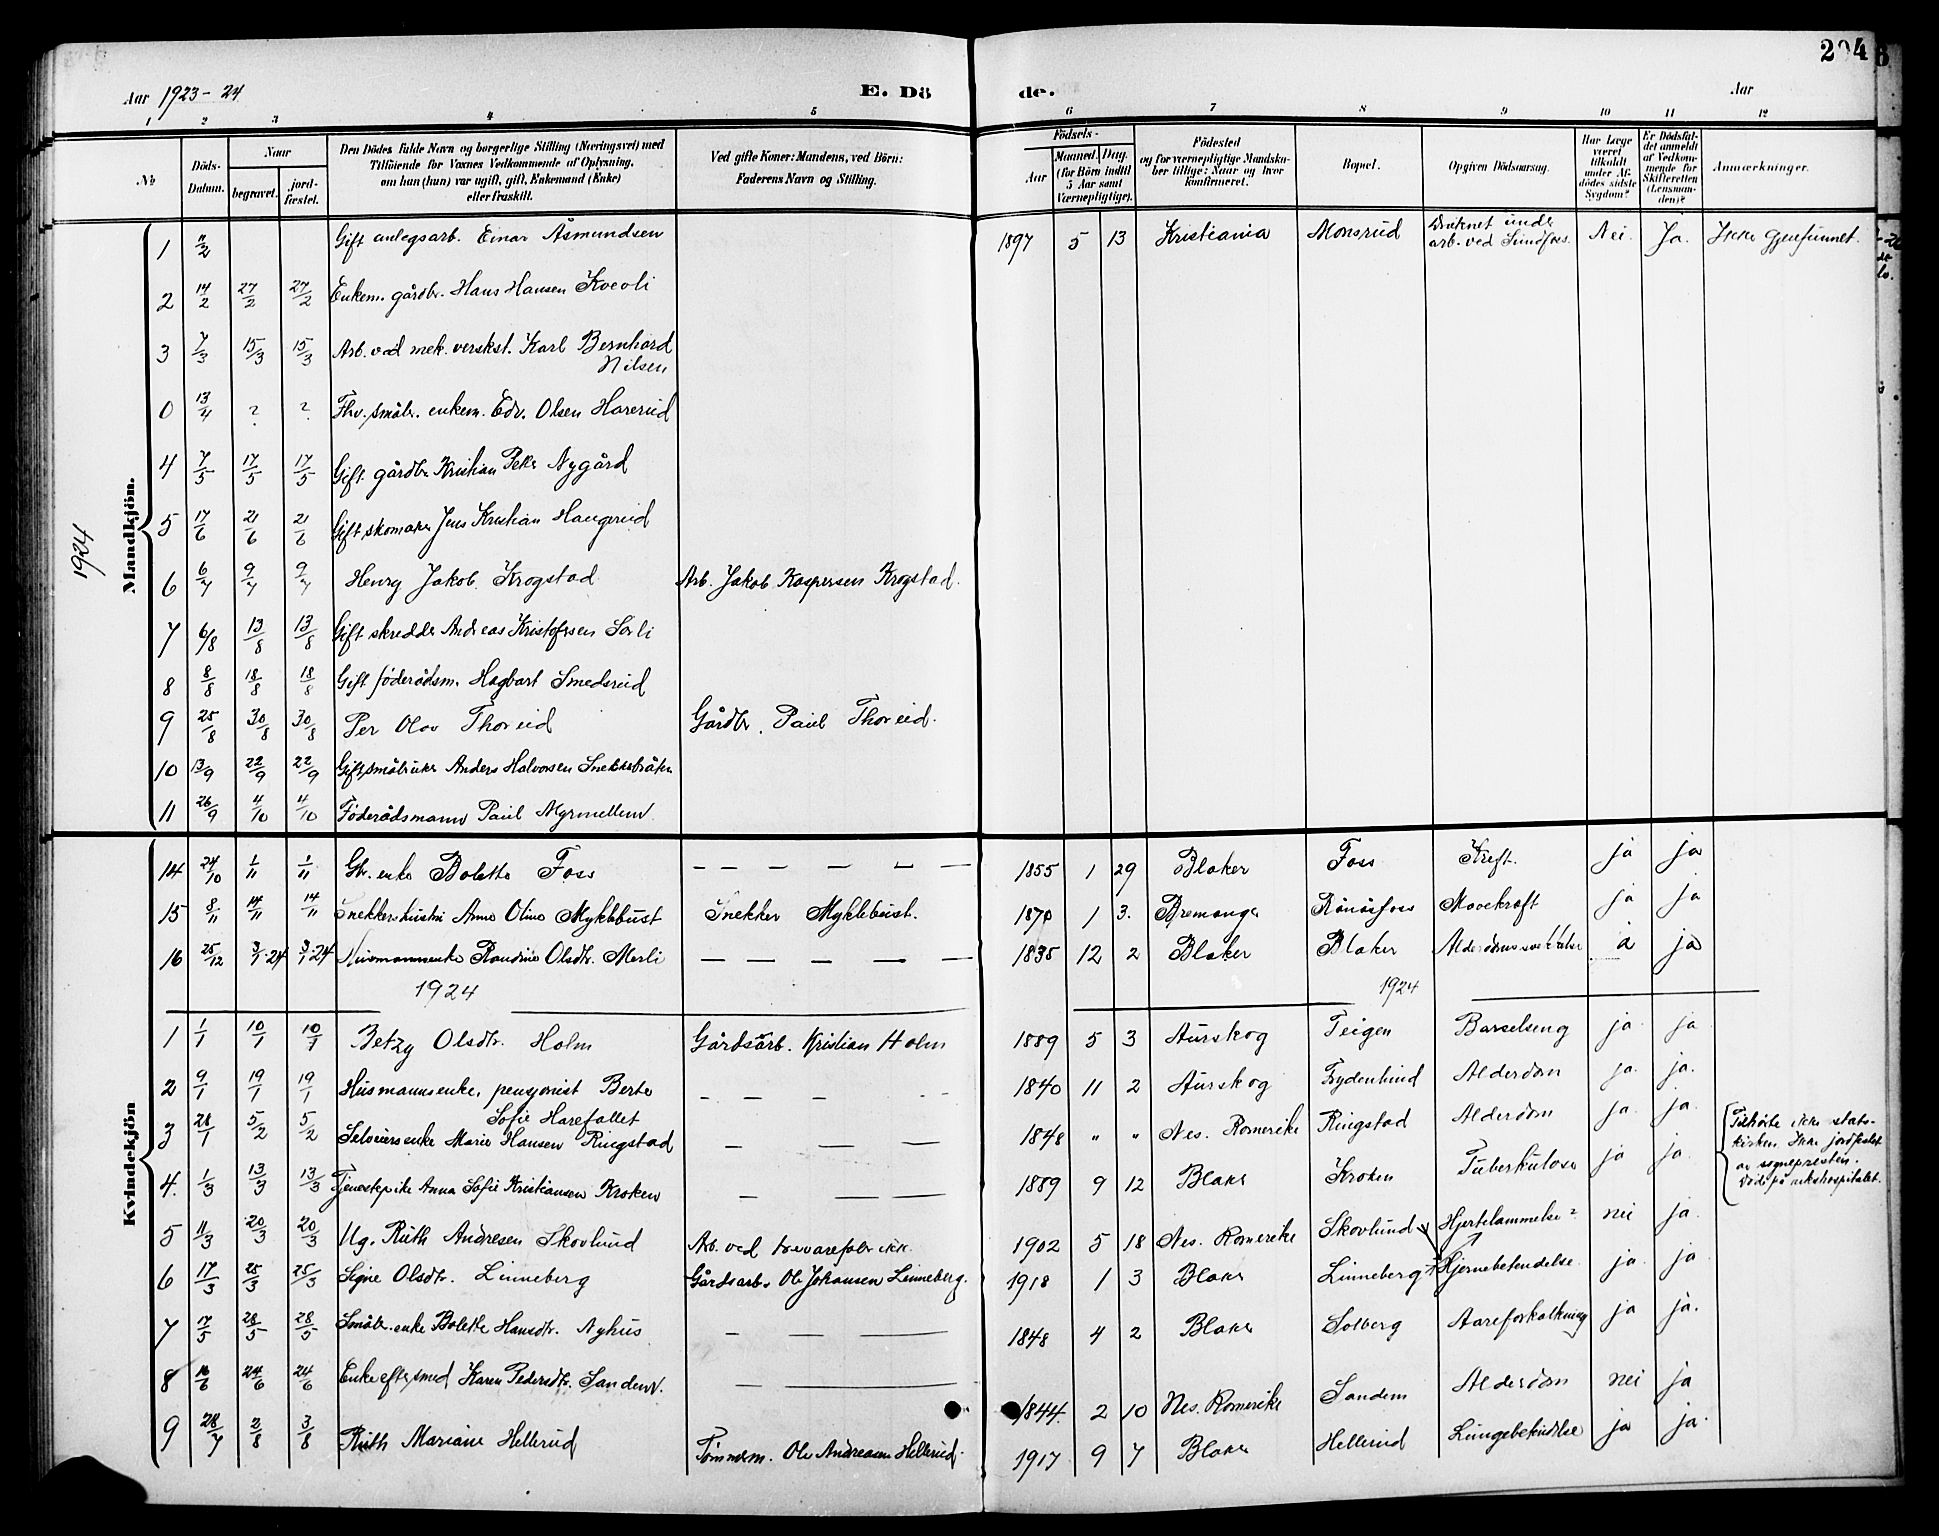 204
Aar 1923-24
E. Dö
de.
Aar
1 2 3 4 5 6 7 8 9 10 11 12
№
Döds-
Datum.
Naar
begravet.
jord-
fæstet.
Den Dödes fulde Navn og borgerlige Stilling (Næringsvei) med
Tilföiende for Voxnes Vedkommende af Oplysning,
om han (hun) var ugift, gift, Enkemand (Enke)
eller fraskilt.
Ved gifte Koner: Mandens, ved Börn:
Faderens Navn og Stilling.
Födsels-
Aar
Maaned. Dag.
(for Börn indtil
5 Aar samt
Værnepligtige).
Födested
og for værnepligtige Mandska-
ber tillige: Naar og hvor
konfirmeret.
Bopæl.
Opgiven Dödsaarsag.
Har Læge
været
tilkaldt
under Af-
dödes sidste
Sygdom?
Er Dödsfal-
det anmeldt
af Vedkom-
mende for
Skifteretten
(Lensman-
den)?
Anmærkninger.
1924
Mandkjön.
1 11/2 Gift anlegsarb. Einar Åsmundsen 1897 5 13 Kristiania Monsrud Druknet under
arb. ved Sundfoss. Nei. Ja. Ikke gjenfunnet.
2 14/2 27/2 27/2 Enkem. gårdbr. Hans Hansen Kveoli
3 7/3 15/3 15/3 Arb. ved mek. verkst. Karl Bernhard
Nilsen
0 13/4 ? ? Fhv. småbr. enkem. Edv. Olsen Harerud
4 7/5 17/5 17/5 Gift gårdbr. Kristian Peter Nygård
5 17/6 21/6 21/6 Gift skomaker Jens Kristian Haugerud
6 6/7 9/7 9/7 Henry Jakob Krogstad Arb. Jakob Kaspersen Krogstad.
7 6/8 13/8 13/8 Gift skredder Andreas Kristofersen Sørli
8 8/8 18/8 18/8 Gift føderådsm. Hagbart Smedsrud
9 25/8 30/8 30/8 Per Olav Thoreid Gårdbr. Paul Thoreid.
10 13/9 22/9 22/9 Gift småbruker Anders Halvorsen Snekkebråten
11 26/9 4/10 4/10 Føderådsmann Paul Myrmellem
Kvindekjön
14 24/10 1/11 1/11 Gbr. enke Bolette Foss — — — — — — 1855 1 29 Blaker Foss Kreft. ja ja
15 8/11 14/11 14/11 Snekkerhustru Anne Oline Myklebust Snekker Myklebust. 1870 1 3. Bremanger Rånåsfoss Mavekræft ja ja
16 25/12 3/1-24 3/1-24 Husmannsenke Randine Olsdtr. Merli — — — — — 1835 12 2 Blaker Blaker Alderdomssvekkelse ja ja
1924 1924
1 1/1 10/1 10/1 Betzy Olsdtr. Holm Gårdsarb. Kristian Holm 1889 5 3 Aurskog Teigen Barselseng ja ja
2 9/1 19/1 19/1 Husmannsenke, pensjonist Berte
Sofie Harefallet — — — — — 1840 11 2 Aurskog Frydenlund Alderdom ja. ja.
3 28/1 5/2 5/2 Selveiersenke Marie Hansen Ringstad — — — 1848 " " Nes. Romerike Ringstad Alderdom ja. ja.
4. 1/3 13/3 13/3 Tjenestepike Anna Sofie Kristiansen Kroken — — — 1889 9 12 Blaker Kroken Tuberkulose ja ja.
Tilhørte ikke stats-
kirken. Ikke jordfestet
av sogneprestén.
Døde på rikshospitalet.
5 11/3 20/3 20/3 Ug. Ruth Andresen Skovlund Arb. ved trevarefabrikk. 1902 5 18 Nes. Romerike Skovlund Hjertelammelse? nei ja.
6 17/3 25/3 25/3 Signe Olsdtr. Linneberg Gårdsarb. Ole Johansen Linneberg. 1918 1 3 Blaker Linneberg Hjernebetendelse. ja ja
7 17/5 28/5 28/5 Småbr. enke Bolette Hansdtr. Nyhus — — — 1848 4 2 Blaker Solberg Aareforkalkning ja ja.
8 16/6 24/6 24/6 Enke efter smed Karen Pedersdtr. Sandem. — — 1844 2 10 Nes. Romerike Sandem Alderdom nei ja
9 28/7 2/8 3/8 Ruth Mariane Hellerud Tømmerm. Ole Andreasen Hellerud. 1917 9 7 Blaker Hellerud Lungebetendelse ja ja.